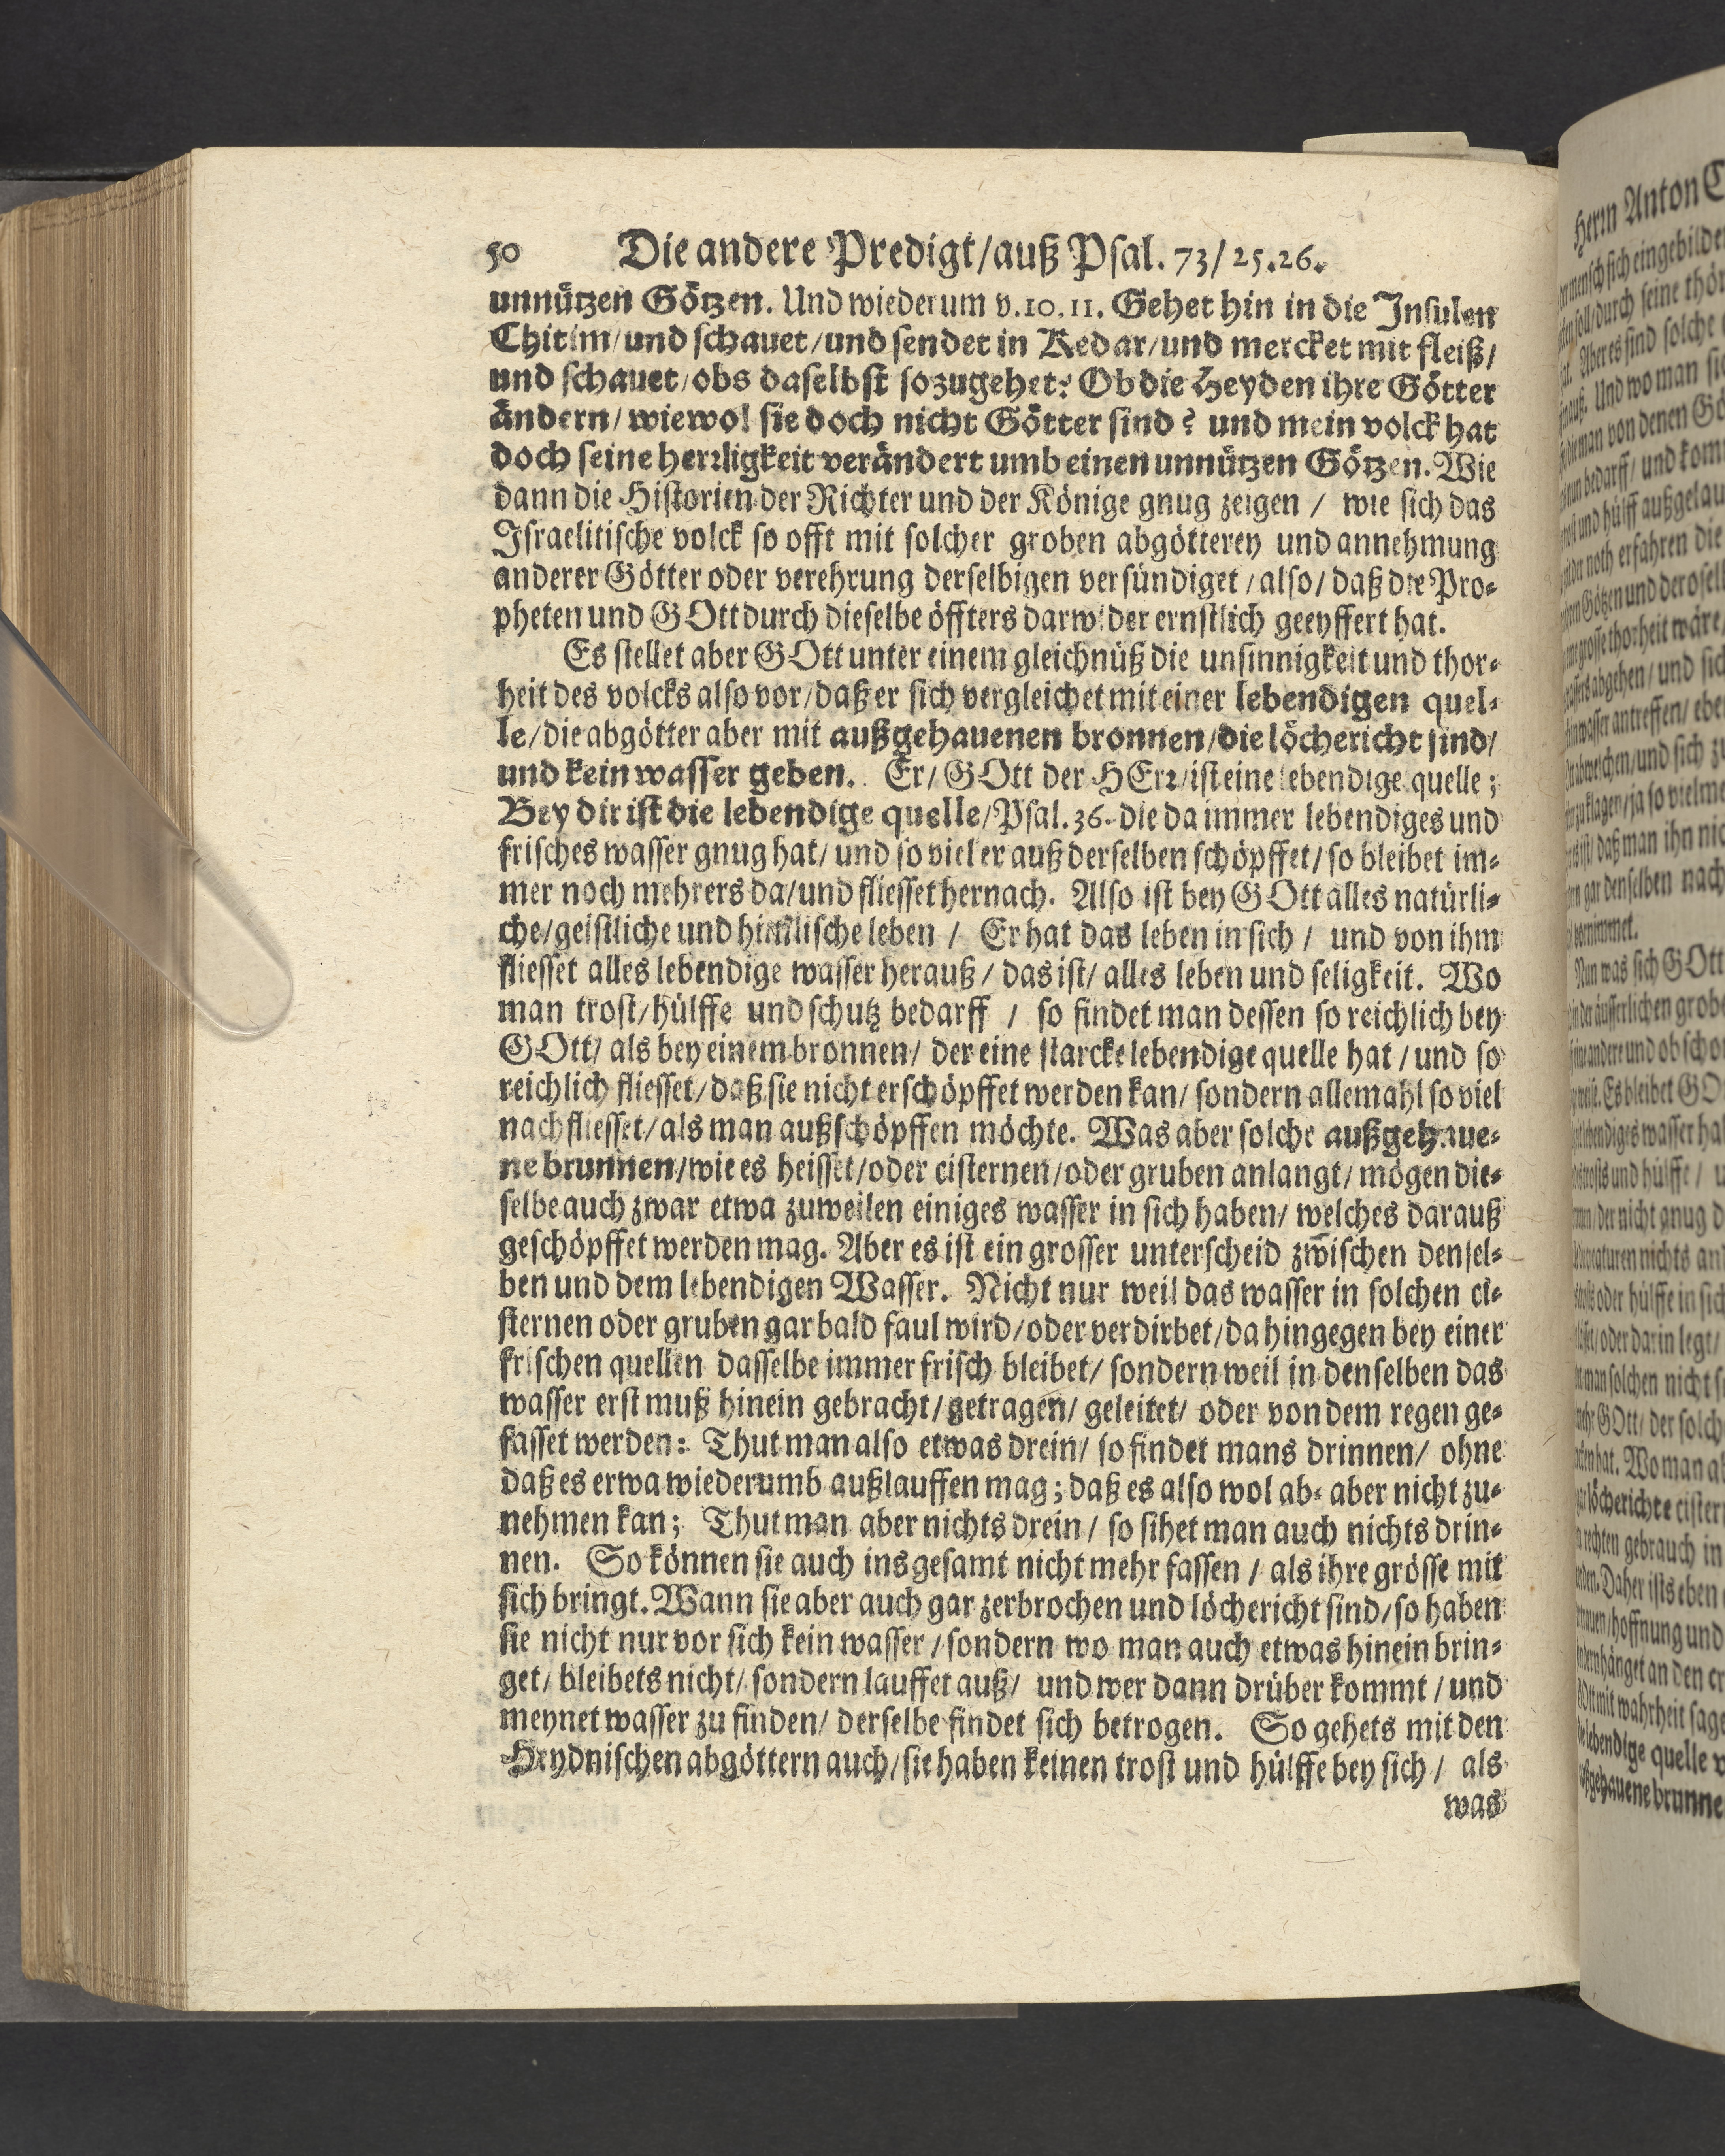 50 Die andere Predigt/auß Psal. 73/25.26.
unnützen Götzen. Und wiederum v.10.11. Gehet hin in die Insulen
Chitim/und schauet/und sendet in Kedar/und mercket mit fleiß/
und schauet/obs daselbst so zugehet? Ob die Heyden ihre Götter
ändern/wiewol sie doch nicht Götter sind? und mein volck hat
doch seine herrligkeit verändert umb einen unnützen Götzen. Wie
dann die Historien der Richter und der Könige gnug zeigen / wie sich das
Israelitische volck so offt mit solcher groben abgötterey und annehmung
anderer Götter oder verehrung derselbigen versündiget/also/daß die Pro-
pheten und GOtt durch dieselbe öffters darwider ernstlich geeyffert hat.
Es stellet aber GOtt unter einem gleichnüß die unsinnigkeit und thor-
heit des volcks also vor/daß er sich vergleichet mit einer lebendigen quel-
le/die abgötter aber mit außgehauenen bronnen/die löchericht sind/
und kein wasser geben. Er/GOtt der HErr/ist eine lebendige quelle;
Bey dir ist die lebendige quelle/Psal.36. die da immer lebendiges und
frisches wasser gnug hat/und so viel er auß derselben schöpffet/so bleibet im-
mer noch mehrers da/und fliesset hernach. Also ist bey GOtt alles natürli-
che/geistliche und himmlische leben / Er hat das leben in sich / und von ihm
fliesset alles lebendige wasser herauß/das ist/alles leben und seligkeit. Wo
man trost/hülffe und schutz bedarff / so findet man dessen so reichlich bey
GOtt/als bey einem bronnen/der eine starcke lebendige quelle hat/und so
reichlich fliesset/daß sie nicht erschöpffet werden kan/sondern allemahl so viel
nachfliesset/als man außschöpffen möchte. Was aber solche außgehaue-
ne brunnen/wie es heisset/oder cisternen/oder gruben anlangt/mögen die-
selbe auch zwar etwa zuweilen einiges wasser in sich haben/welches darauß
geschöpffet werden mag. Aber es ist ein grosser unterscheid zwischen densel-
ben und dem lebendigen Wasser. Nicht nur weil das wasser in solchen ci-
sternen oder gruben gar bald faul wird/oder verdirbet/da hingegen bey einer
frischen quellen dasselbe immer frisch bleibet/sondern weil in denselben das
wasser erst muß hinein gebracht/getragen/geleitet/oder von dem regen ge-
fasset werden: Thut man also etwas drein/so findet mans drinnen/ohne
daß es etwa wiederumb außlauffen mag; daß es also wol ab- aber nicht zu-
nehmen kan; Thut man aber nichts drein/so sihet man auch nichts drin-
nen. So können sie auch insgesamt nicht mehr fassen/als ihre grösse mit
sich bringt. Wann sie aber auch gar zerbrochen und löchericht sind/so haben
sie nicht nur vor sich kein wasser/sondern wo man auch etwas hinein brin-
get/bleibets nicht/sondern lauffet auß/und wer dann drüber kommt/und
meynet wasser zu finden/derselbe findet sich betrogen. So gehets mit den
Heydnischen abgöttern auch/sie haben keinen trost und hülffe bey sich/als
was